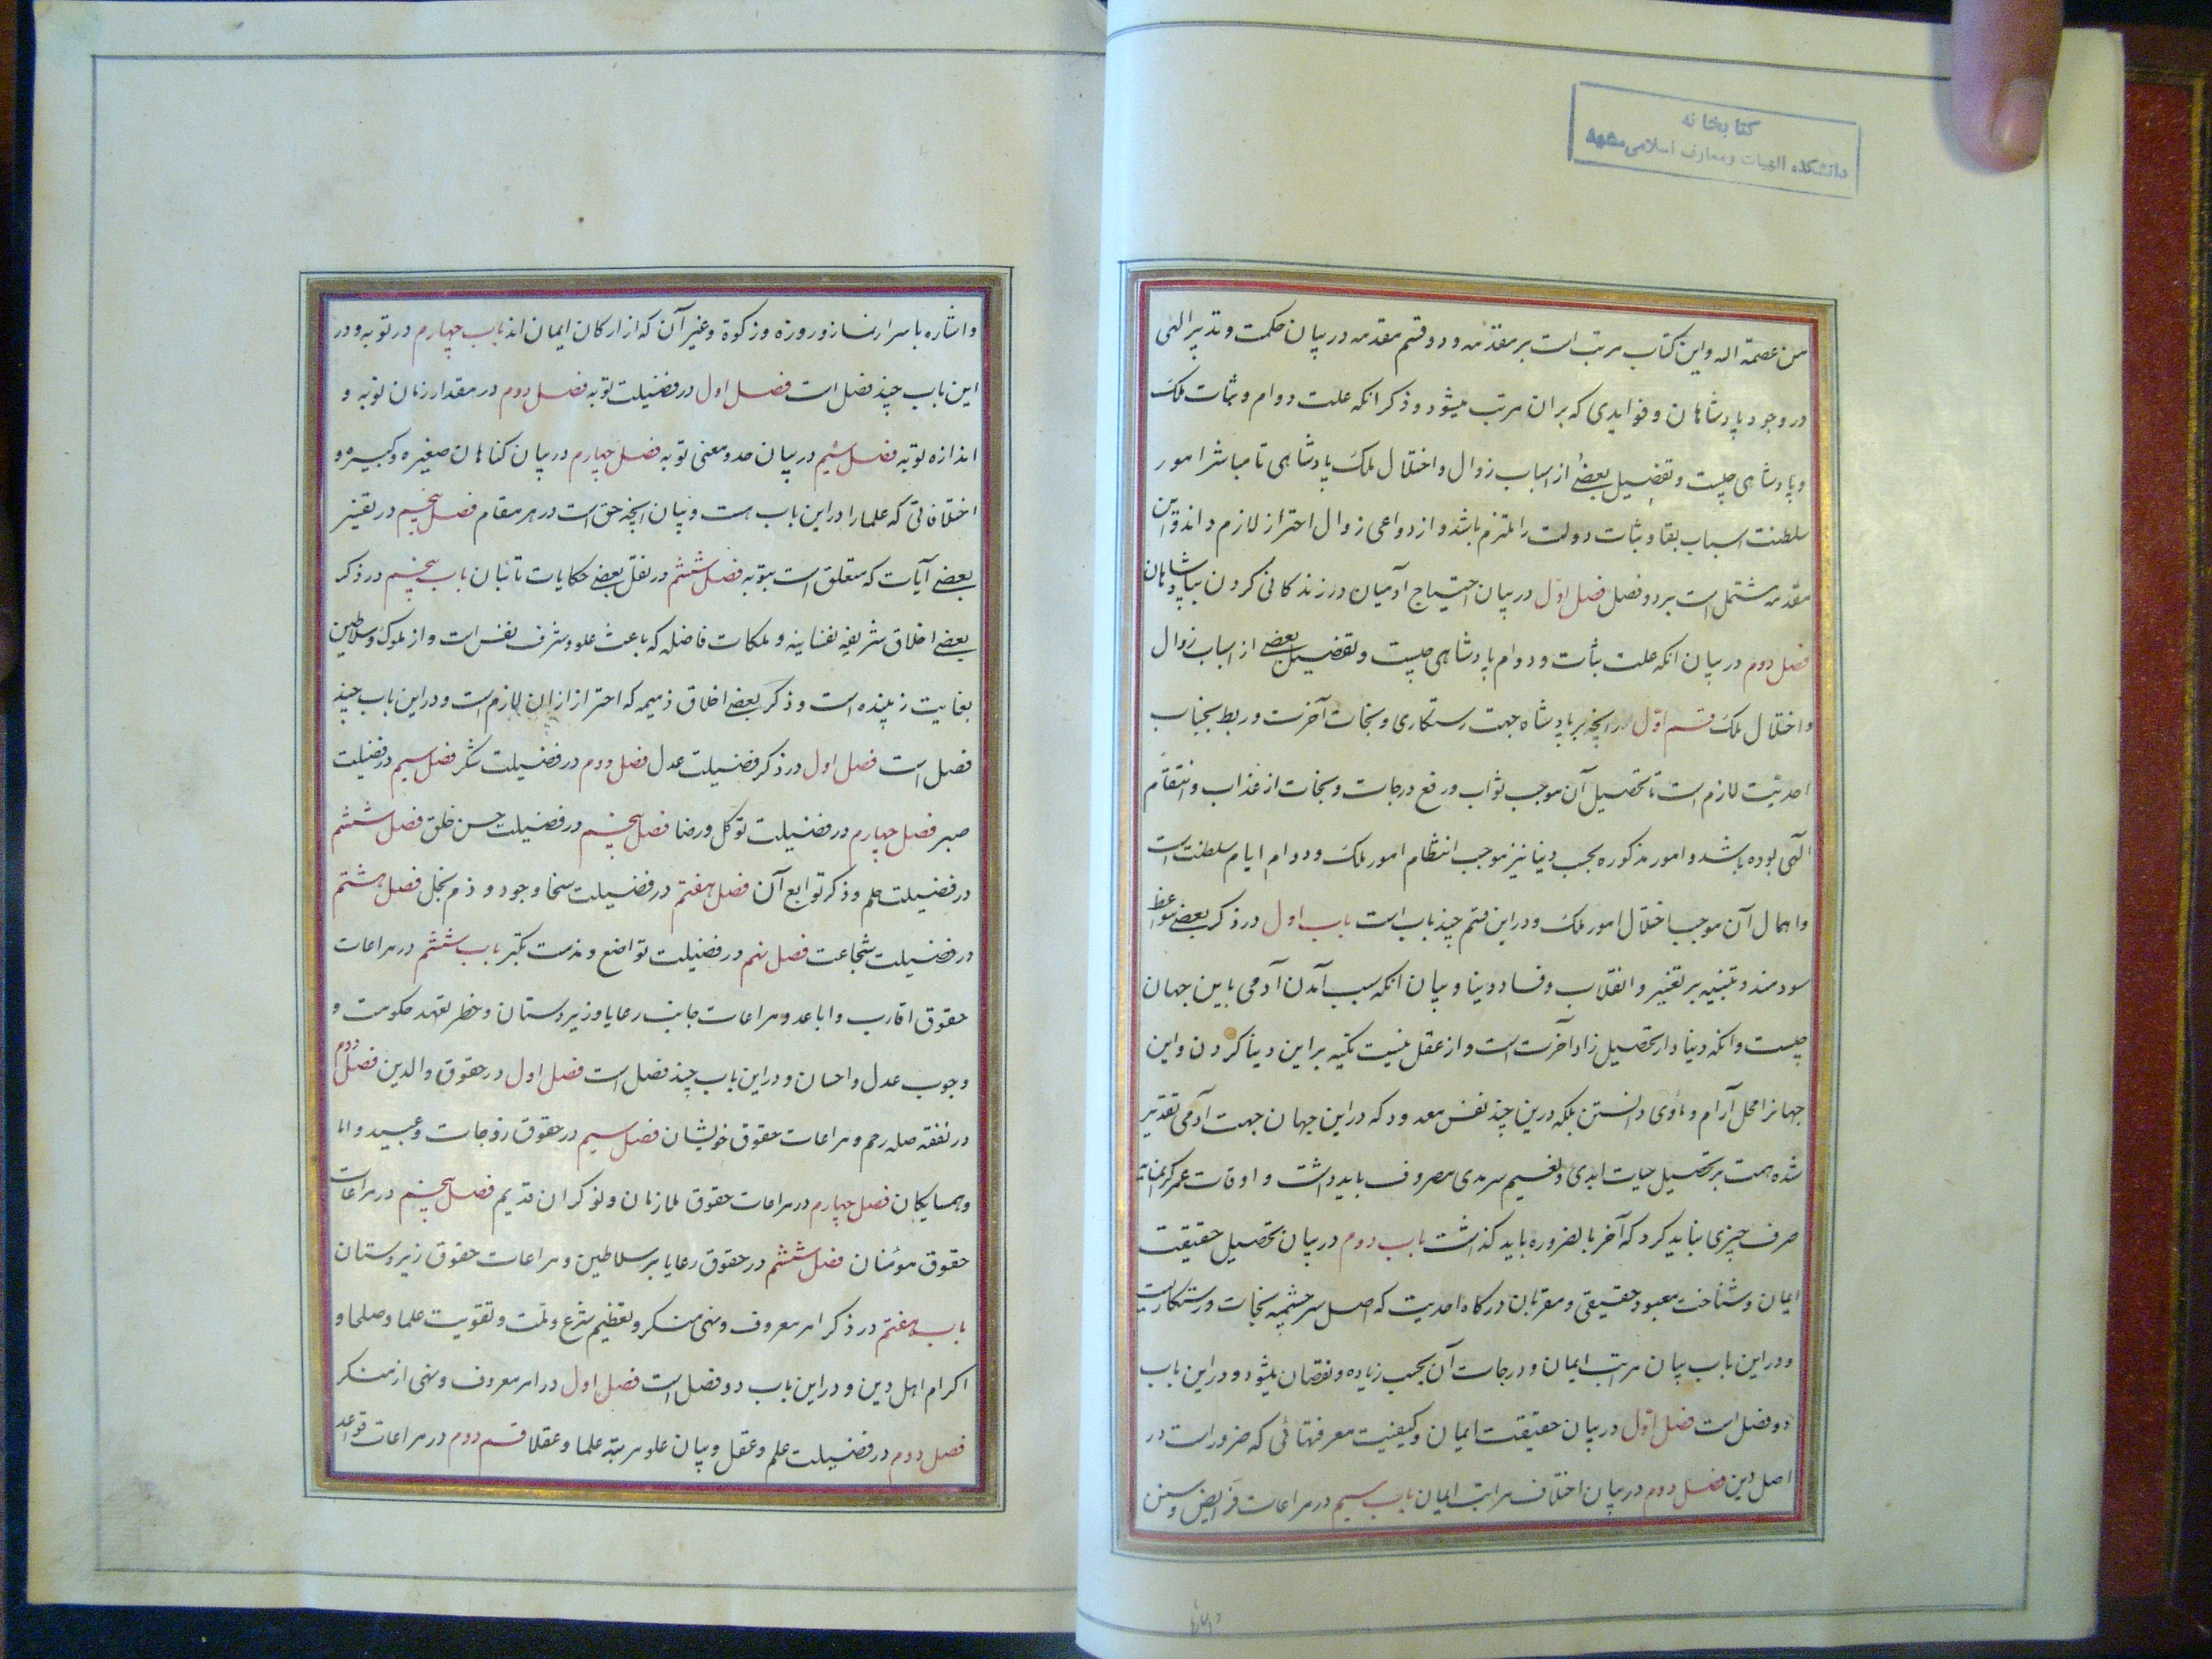 کتابخانه
دانشکده الهیات و معارف اسلامی مشهد
من عصمة اله و این کتاب مرتب است بر مقدمه و دو قسم مقدمه در بیان حکمت و تدبیر الهی
در وجود پادشاهان و فوایدی که بر ان مرتب میشود و ذکر انکه علت دوام و ثبات ملک
و پادشاهی چیست و تفصیل بعضی از اسباب زوال و اختلال ملک پادشاهی تا مباشر امور
سلطنت اسباب بقا و ثبات دولت را ملتزم باشد و از دواعی زوال احتراز لازم داند و این
مقدمه مشتمل است بر دو فصل فصل اول در بیان احتیاج آدمیان در زندکانی کردن بپادشاهان
فصل دوم در بیان انکه علت ثبات و دوام پادشاهی چیست و تفصیل بعضی از اسباب زوال
و اختلال ملک قسم اول در انچه بر پادشاه جهت رستکاری و نجات آخرت و ربط بجناب
احدیت لازم است تا تحصیل آن موجب ثواب و رفع درجات و نجات از عذاب و انتقام
الهی بوده باشد و امور مذکوره بحسب دنیا نیز موجب انتظام امور ملک و دوام ایام سلطنت است
و اهمال آن موجب اختلال امور ملک و در این قسم چند باب است باب اول در ذکر بعضی مواعظ
سودمند و تنبیه بر تغییر و انقلاب و فساد دنیا و بیان انکه سبب آمدن آدمی باین جهان
چیست و انکه دنیا دار تحصیل زاد آخرت است و از عقل نیست تکیه بر این دنیا کردن و این
جهانرا محل آرام و مأوی دانستن بلکه درین چند نفس معدود که در این جهان جهت آدمی تقدیر
شده همت بر تحصیل حیات ابدی و نعیم سرمدی مصروف باید داشت و اوقات عمر کرانمایه
صرف چیزی نباید کرد که آخر بالضروره باید کذاشت باب دوم در بیان تحصیل حقیقت
ایمان و شناخت معبود حقیقی و مقربان درکاه احدیت که اصل سرچشمه نجات و رستکاریست
و در این باب بیان مراتب ایمان و درجات آن بحسب زیاده و نقصان میشود و در این باب
دو فصل است فصل اول در بیان حقیقت ایمان و کیفیت معرفتهائی که ضرور است در
اصل دین فصل دوم در بیان اختلاف مراتب ایمان باب سیم در مراعات فرایض و سنن
و اشاره باسرار نماز و روزه و زکوة و غیر آن که از ارکان ایمان اند باب چهارم در توبه و در
این باب چند فصل است فصل اول در فضیلت توبه فصل دوم در مقدار زمان توبه و
اندازه توبه فصل سیم در بیان حد و معنی توبه فصل چهارم در بیان کناهان صغیره و کبیره و
اختلافاتی که علما را در این باب هست و بیان انچه حق است در هر مقام فصل پنجم در تفسیر
بعضی آیات که متعلق است بتوبه فصل ششم در نقل بعضی حکایات تائبان باب پنجم در ذکر
بعضی اخلاق شریفه نفسانیه و ملکات فاضله که باعث علو و شرف نفس است و از ملوک و سلاطین
بغایت زیبنده است و ذکر بعضی اخلاق ذمیمه که احتراز از ان لازم است و در این باب چند
فصل است فصل اول در ذکر فضیلت عدل فصل دوم در فضیلت شکر فصل سیم در فضیلت
صبر فصل چهارم در فضیلت توکل و رضا فصل پنجم در فضیلت حسن خلق فصل ششم
در فضیلت حلم و ذکر توابع آن فصل هفتم در فضیلت سخا و جود و ذم بخل فصل هشتم
در فضیلت شجاعت فصل نهم در فضیلت تواضع و مذمت تکبر باب ششم در مراعات
حقوق اقارب و اباعد و مراعات جانب رعایا و زیردستان و خطر تعهد حکومت و
وجوب عدل و احسان و در این باب چند فصل است فصل اول در حقوق والدین فصل دوم
در نفقه صله رحم و مراعات حقوق خویشان فصل سیم در حقوق زوجات و عبید و اما
و همسایکان فصل چهارم در مراعات حقوق ملازمان و نوکران قدیم فصل پنجم در مراعات
حقوق مومنان فصل ششم در حقوق رعایا بر سلاطین و مراعات حقوق زیردستان
باب هفتم در ذکر امر معروف و نهی منکر و تعظیم شرع و ملت و تقویت علما و صلحا و
اکرام اهل دین و در این باب دو فصل است فصل اول در امر معروف و نهی از منکر
فصل دوم در فضیلت علم و عقل و بیان علو مرتبه علما و عقلا قسم دوم در مراعات قواعد